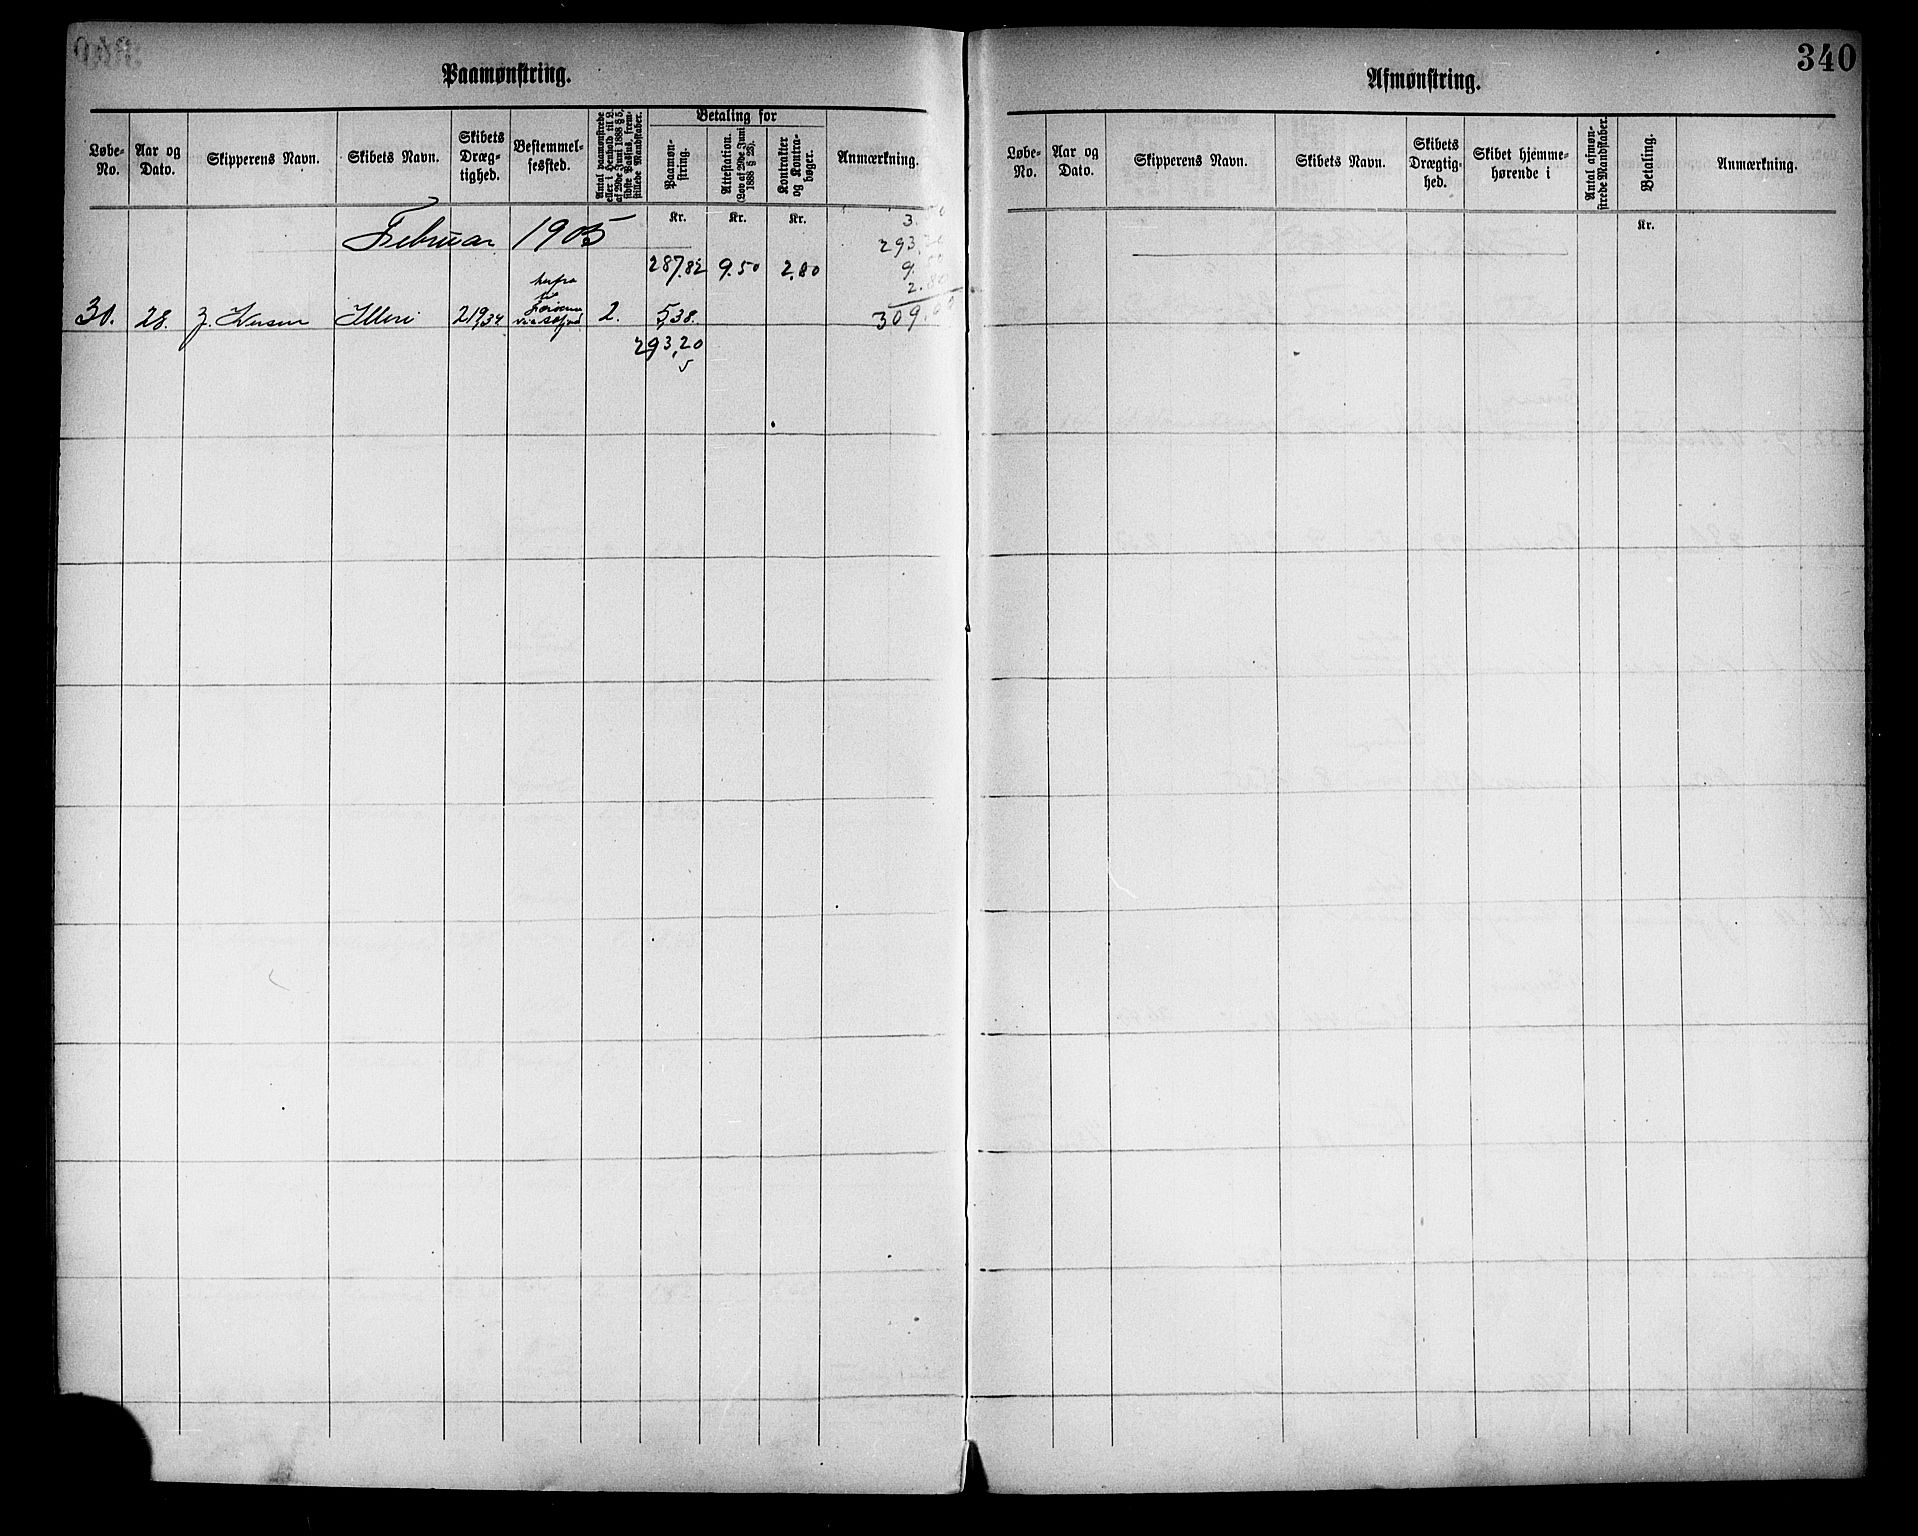 340
Paamønstring.
Løbe-No.
Aar og Dato.
Skipperens Navn.
Skibets Navn.
Skibets Dræg-tighed.
Bestemmel-sessted.
Antal paamønstrede eller i Henhold til L. af 29de Juni 1888 § 5, sidste Passus, frem-stillede Mandskaber.
Betaling for
Paamøn-string.
Attestation. (Lov af 29de Juni 1888 § 25).
Kontrakter og Kontra-bøger.
Anmærkning.
Kr. Kr. Kr.
Februar 1905
287.82 9.50 2,80
3.50
293,20
9.50
2.80
309.00
30. 28. Illeri 2 herfra til 2. 5,38.
293,20
Afmønstring.
Løbe-No.
Aar og Dato.
Skipperens Navn.
Skibets Navn.
Skibets Drægtig-hed.
Skibet hjemme-hørende i
Antal afmøn-strede Mandskaber.
Betaling.
Anmærkning.
Kr.